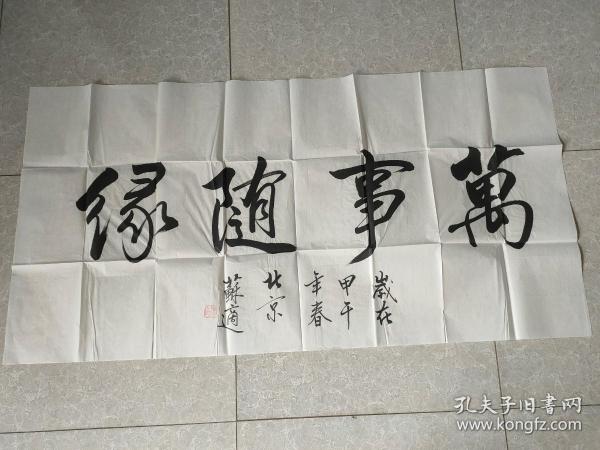 萬事隨緣
歲在
甲午
年春
北京
蘇適
孔夫子旧書网
www.kongfz.com